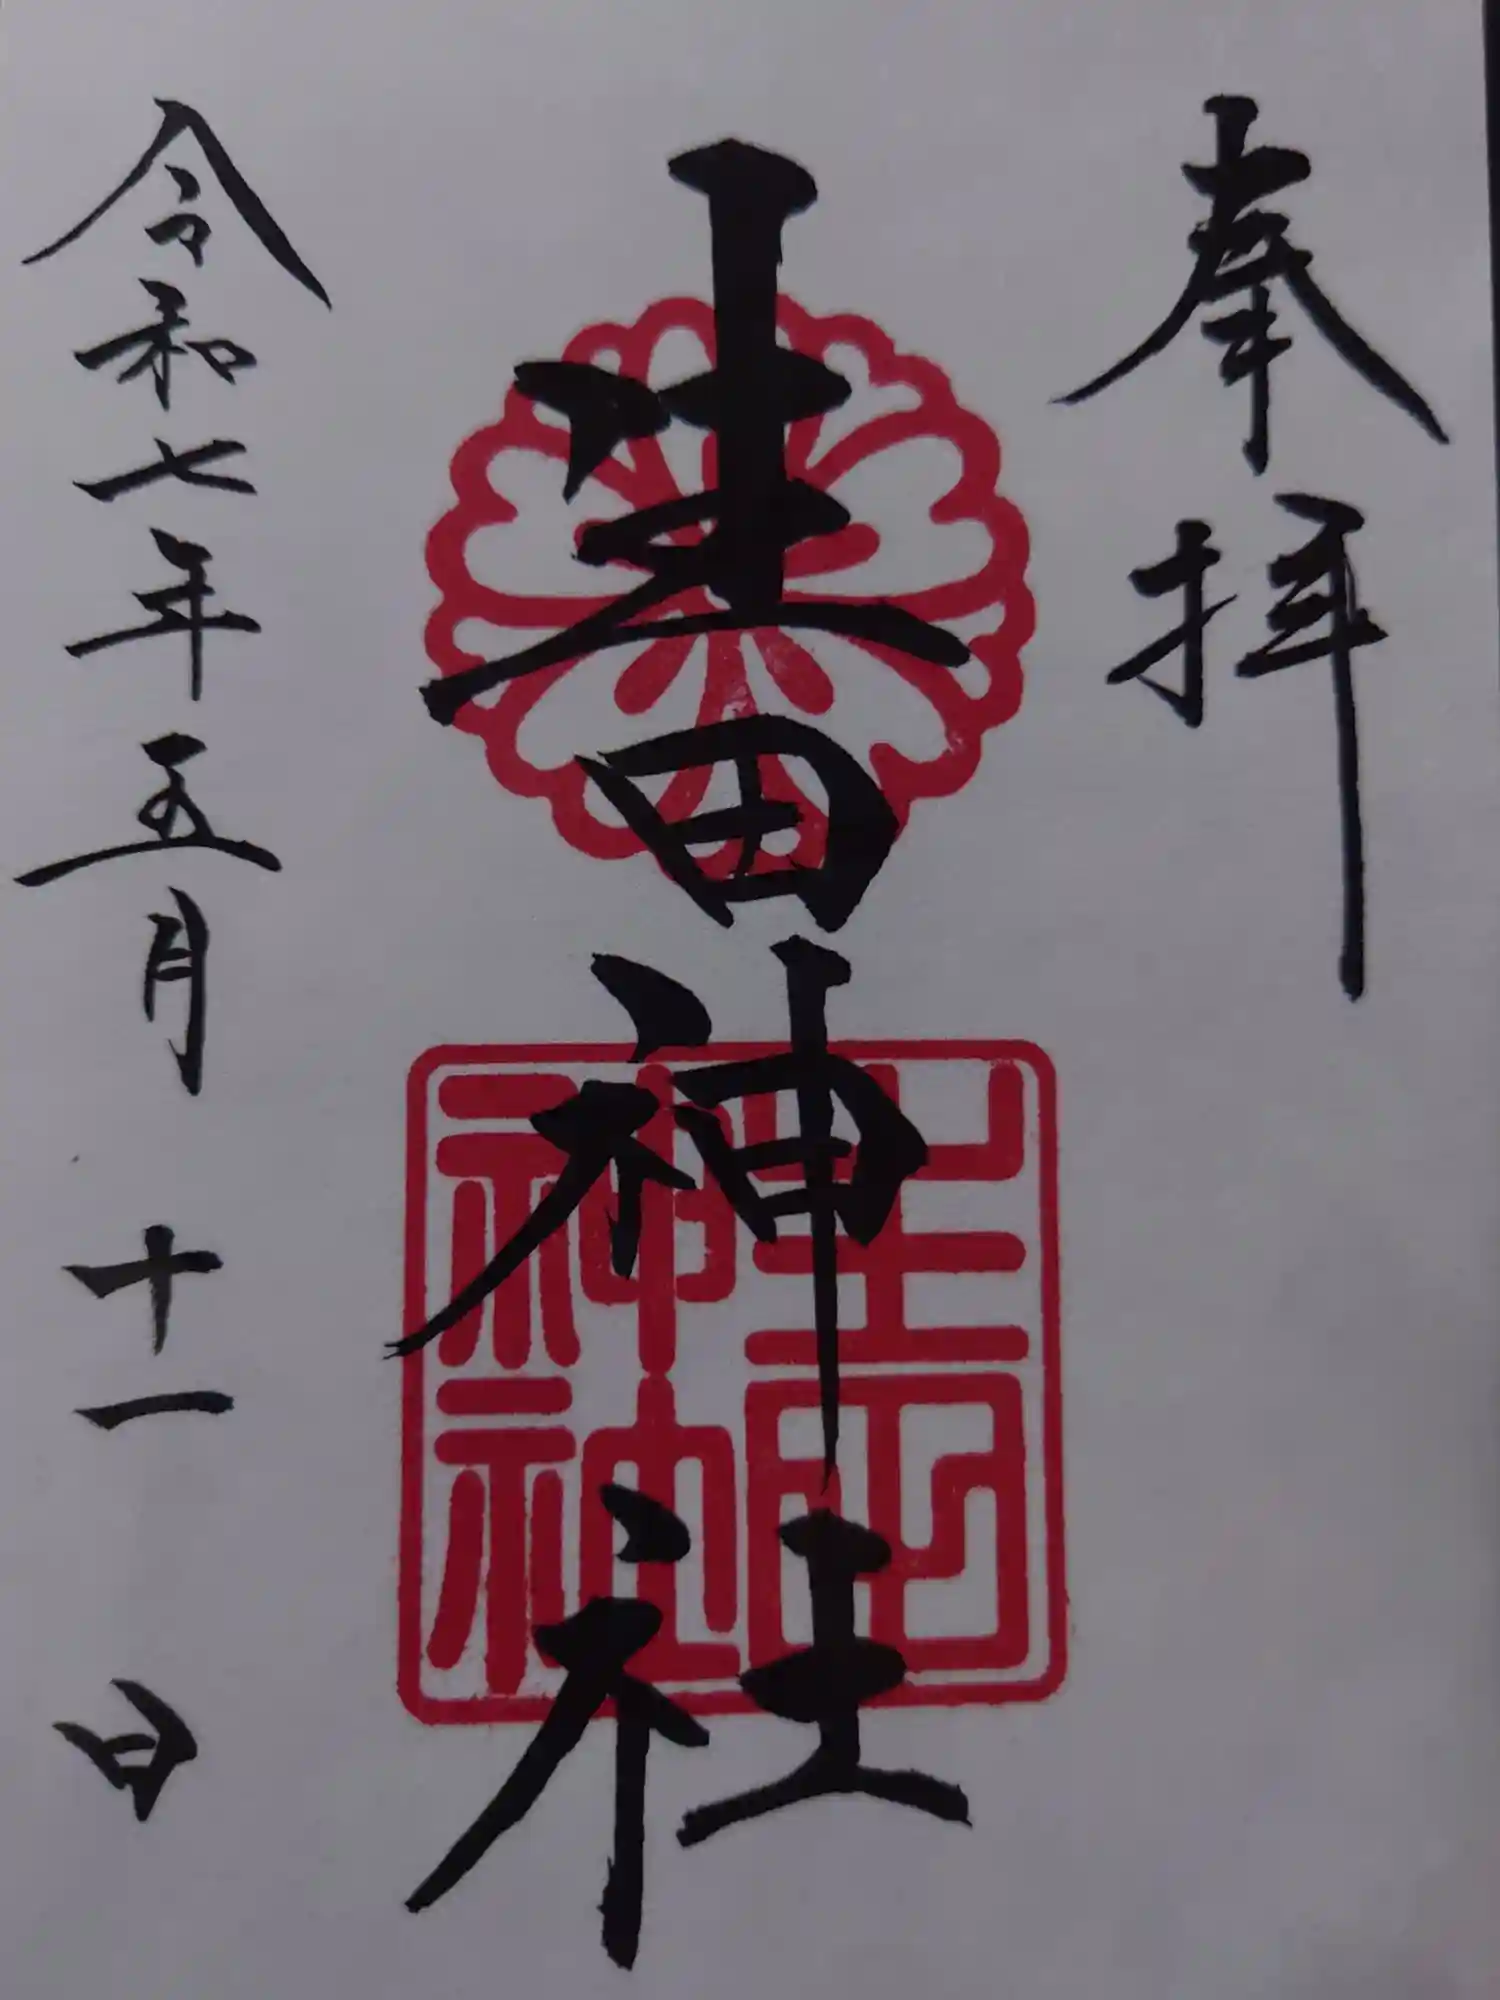 奉拝
生田神社
生田
神社
令和七年五月十一日